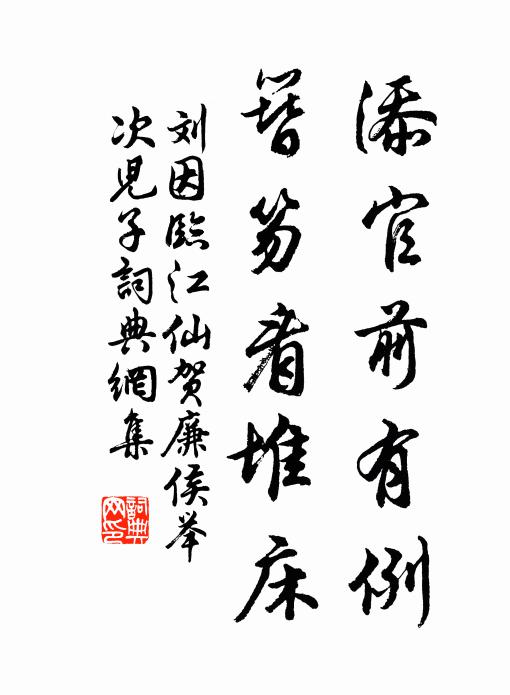 添官前有例
簪笏看堆床
刘因臨江仙賀廉侯举
次児子詞典網集
詞典网印